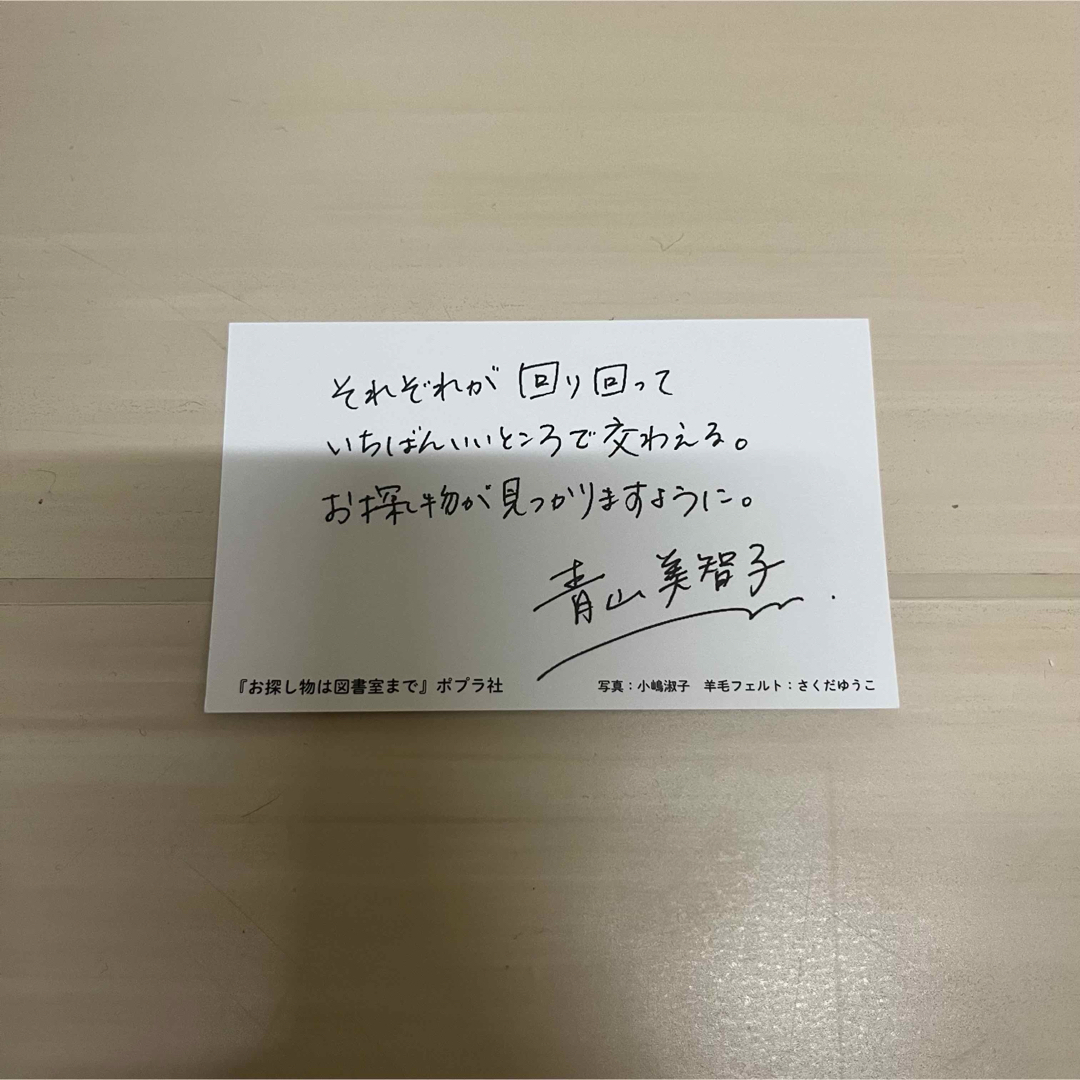 それぞれが回り回って
いちばんいいところで交わえる。
お探し物が見つかりますように。
青山美智子
『お探し物は図書室まで』ポプラ社
写真：小嶋淑子　羊毛フェルト：さくだゆうこ